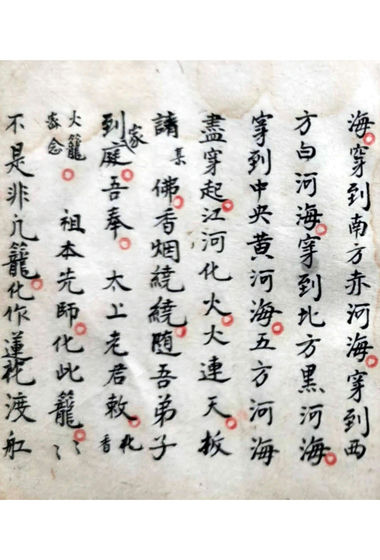 海穿到南方赤河海穿到西
方白河海穿到北方黑河海
穿到中央黄河海五方河海
盡穿起江河化火火連天扳
請集佛香烟繞繞随吾弟子
到家庭吾奉太上老君敕化香
火籠畓念 祖本先師化此籠〻〻
不是非凢籠化作蓮花渡船